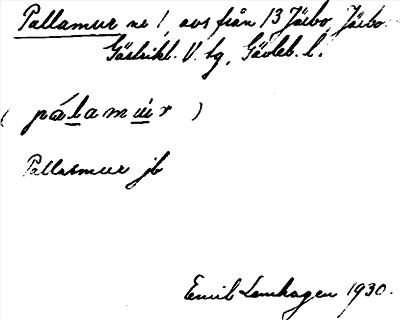 Pallamur nr 1, avs från 13 Järbo, Järbo
Gästrikl. V. tg, Gävleb. l.
( pálamúr )
Pallasmur jb
Emil Lenhagen 1930.